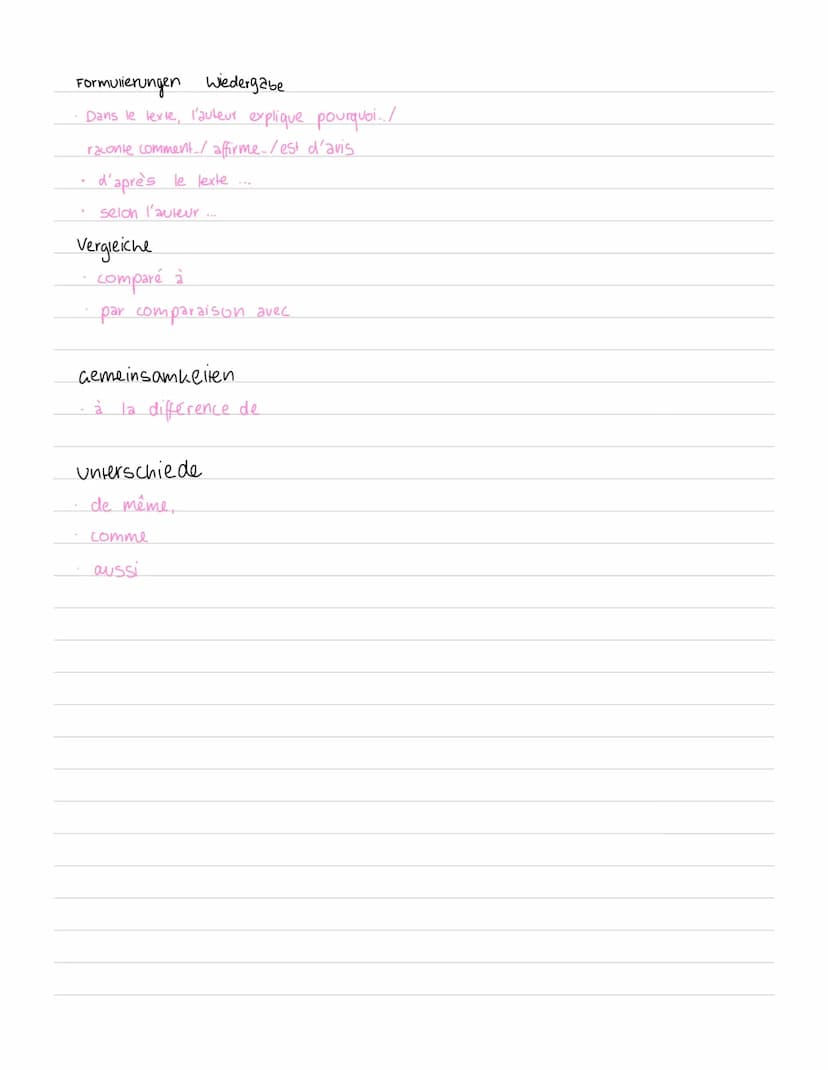 Formulierungen Wiedergabe
· Dans le texte, l'auteur explique pourquoi../
raconte comment../ affirme../ est d'avis
· d'après le texte ...
· selon l'auteur ...
Vergleiche
· comparé à
· par comparaison avec
Gemeinsamkeiten
· à la différence de
Unterschiede
· de même,
· comme
· aussi